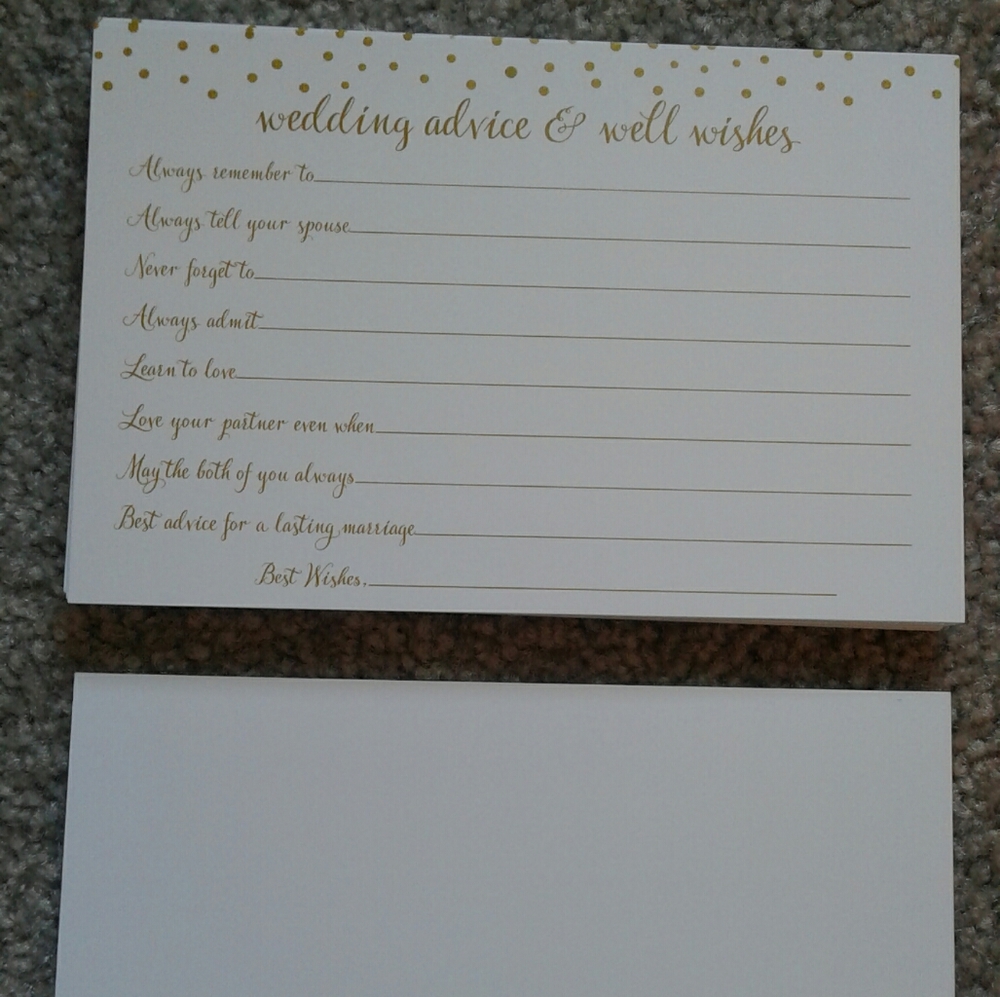 wedding advice & well wishes
Always remember to
Always tell your spouse
Never forget to
Always admit
Learn to love
Love your partner even when
May the both of you always
Best advice for a lasting marriage
Best Wishes,